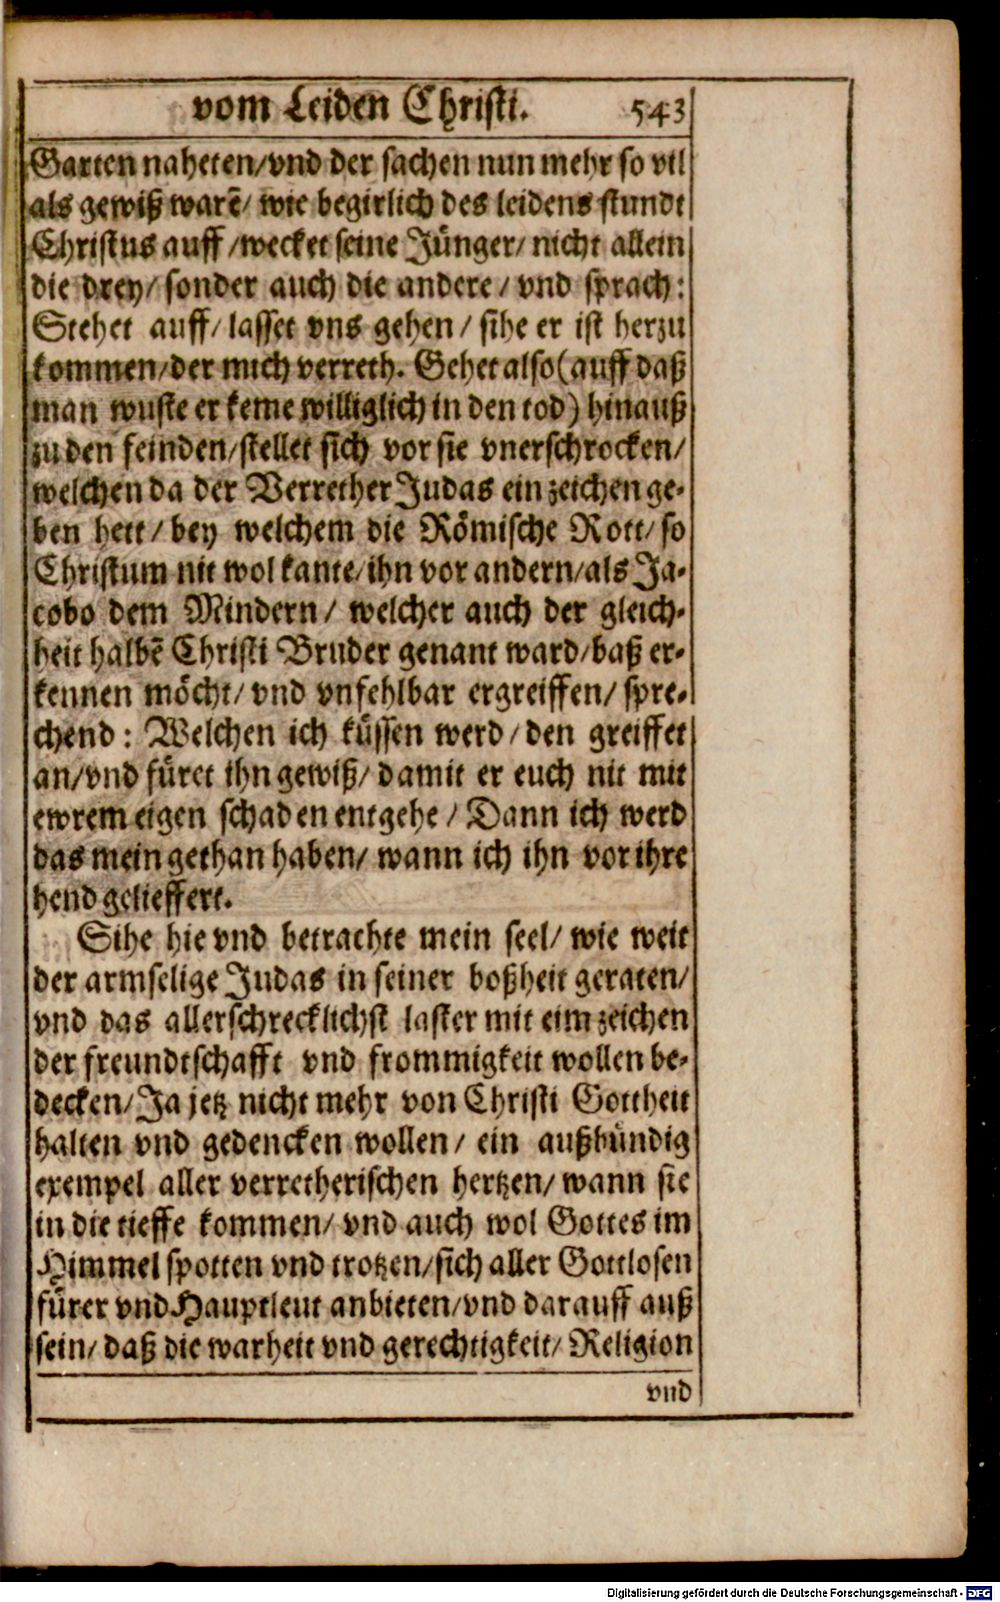 vom Leiden Christi. 543
Garten naheten/vnd der sachen nun mehr so vil
als gewiß warẽ/ wie begirlich des leidens stundt
Christus auff/wecket seine Jünger/ nicht allein
die drey/ sonder auch die andere/ vnd sprach:
Stehet auff/ lasset vns gehen/ sihe er ist herzu
kommen/der mich verreth. Gehet also (auff daß
man wuste er keme williglich in den tod) hinauß
zu den feinden/stellet sich vor sie vnerschrocken/
welchen da der Verrether Judas ein zeichen ge-
ben hett/ bey welchem die Römische Rott/ so
Christum nit wol kante/ihn vor andern/als Ja-
cobo dem Mindern/ welcher auch der gleich-
heit halbẽ Christi Bruder genant ward/baß er-
kennen möcht/ vnd vnfehlbar ergreiffen/ spre-
chend: Welchen ich küssen werd/ den greiffet
an/vnd füret ihn gewiß/ damit er euch nit mit
ewrem eigen schaden entgehe/ Dann ich werd
das mein gethan haben/ wann ich ihn vor ihre
hend gelieffert.
Sihe hie vnd betrachte mein seel/ wie weit
der armselige Judas in seiner boßheit geraten/
vnd das allerschrecklichst laster mit eim zeichen
der freundtschafft vnd frommigkeit wollen be-
decken/Ja jetz nicht mehr von Christi Gottheit
halten vnd gedencken wollen/ ein außbündig
exempel aller verretherischen hertzen/ wann sie
in die tieffe kommen/ vnd auch wol Gottes im
Himmel spotten vnd trotzen/sich aller Gottlosen
fürer vnd Hauptleut anbieten/vnd darauff auß
sein/ daß die warheit vnd gerechtigkeit/ Religion
vnd
Digitalisierung gefördert durch die Deutsche Forschungsgemeinschaft - DFG